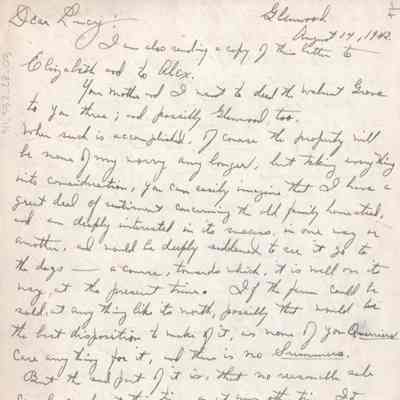 Glenwood
August 14, 1942
Dear Lucy:
I am also sending a copy of this letter to
Elizabeth and to Alex.
Your mother and I want to deed the Walnut Grove
to you three; and possibly Glenwood too.
When such is accomplished, of course the property will
be none of my worry any longer, but taking everything
into consideration, you can easily imagine that I have a
great deal of sentiment concerning the old family homestead,
and am deeply interested in its success, in one way or
another, and would be deeply saddened to see it go to
the dogs — a course, towards which, it is well on its
way, at the present time. If the farm could be
sold, at any thing like its worth, possibly that would be
the best disposition to make of it, as none of you
care any thing for it, and there is no
But the sad part of it is, that no reasonable sale